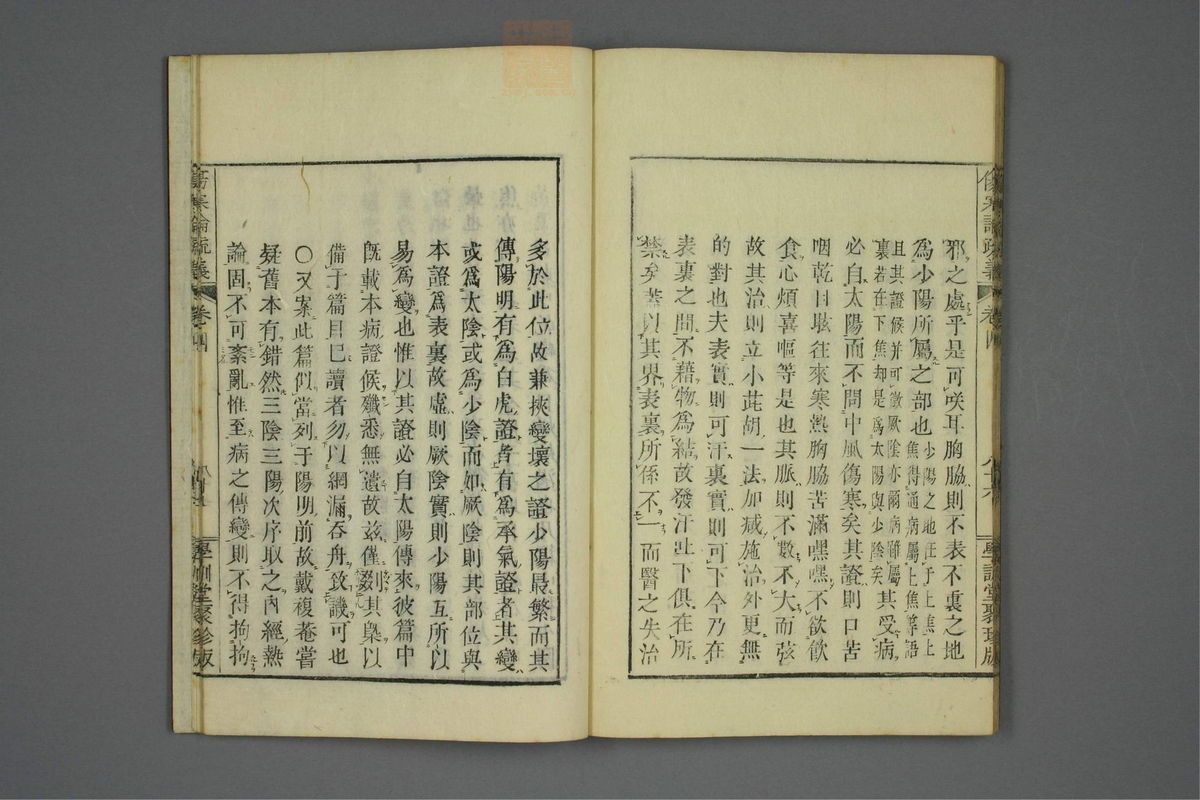 邪之處乎是可咲耳胸脇則不表不裏之地
爲少陽所屬之部也少陽之地在于上焦上
焦得通病屬上焦等語
且其證候并可徵厥陰亦爾病雖屬
裏若在下焦却是爲太陽與少陰矣其受病
必自太陽而不問中風傷寒矣其證則口苦
咽乾目眩往來寒熱胸脇苦滿嘿嘿不欲飮
食心煩喜嘔等是也其脈則不數不大而弦
故其治則立小茈胡一法加減施治外更無
的對也夫表實則可汗裏實則可下今乃在
表裏之間不藉物爲結故發汗吐下俱在所
禁矣葢以其界表裏所係不一而醫之失治
學訓堂聚珍版
多於此位故兼挾變壞之證少陽最繁而其
傳陽明有爲白虎證者有爲承氣證者其變
或爲太陰或爲少陰而如厥陰則其部位與
本證爲表裏故虛則厥陰實則少陽互所以
易爲變也惟以其證必自太陽傳來彼篇中
既載本病證候殲悉無遺故玆僅剟其槩以
備于篇目巳讀者勿以網漏吞舟致譏可也
○又案此篇似當列于陽明前故戴複菴嘗
疑舊本有錯然三陰三陽次序取之內經熱
論固不可紊亂惟至病之傳變則不得拘拘
傷寒論疏義 卷四
學訓堂聚珍版